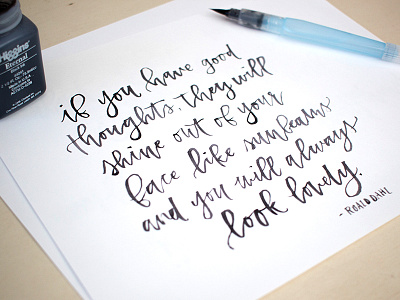 Higgins
Eternal
if you have good
thoughts, they will
shine out of your
face like sunbeams
and you will always
look lovely.
-ROALD DAHL